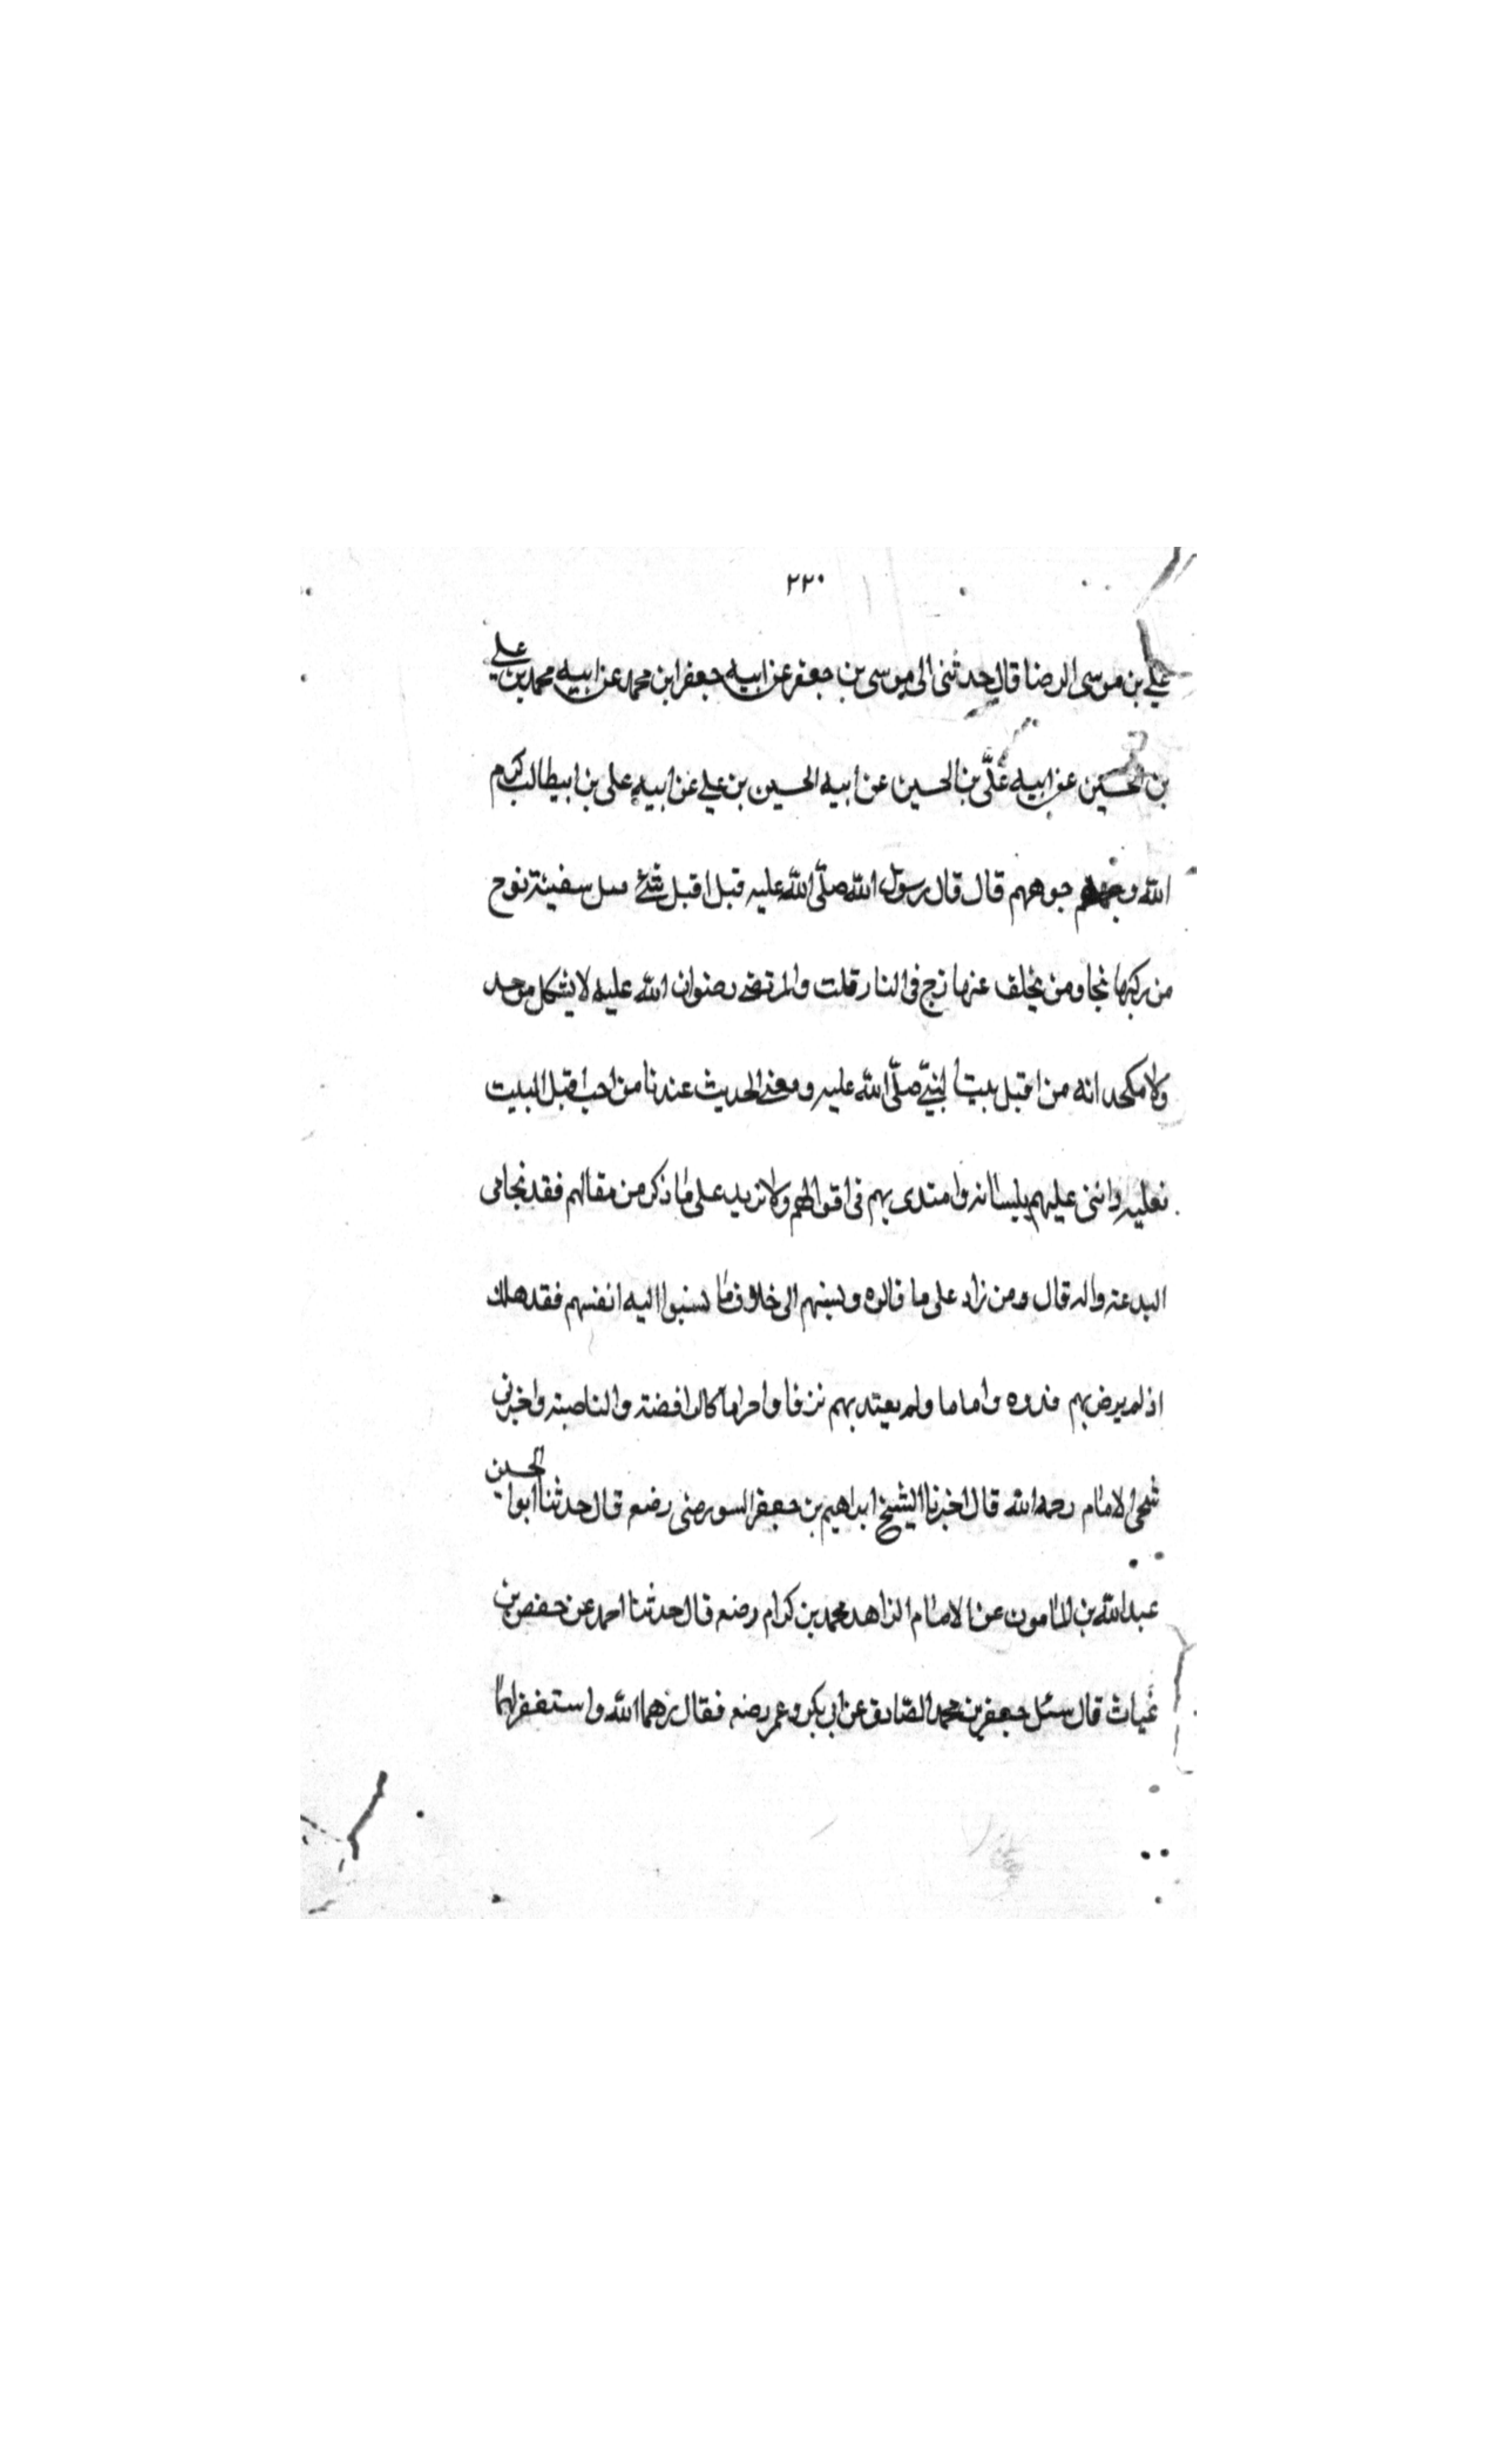 ٢٢٠
علي بن موسى الرضا قال حدثنى ابى موسى بن جعفر عن ابيه جعفر ابن محمد عن ابيه محمد بن علي
بن الحسين عن ابيه علي بن الحسين عن ابيه الحسين بن علي عن ابيه على بن ابيطالب كرم
الله وجههم قال قال رسول الله صلى الله عليه سفينة نوح
من ركبها نجا ومن يخلف عنها زج فى النار قلت والمرتضى رضوان الله عليه لا يشكل موحد
ولا ملحد انه من اهل بيت النبي صلى الله عليه ومعنى الحديث عندنا من احب اهل البيت
واثنى عليهم بلسانه واهتدى بهم فى اقوالهم ولا نزيد على ما ذكر من مقالهم فقد نجا من
البدعة قال ومن زاد على ما قالوه ونسبهم الى خلاف ما نسبوا اليه انفسهم فقد هلك
اذ لم يرض بهم واماما ولم يعتد بهم كالرافضة والناصبة واخبرنى
الامام رحمه الله قال اخبرنا الشيخ ابراهيم بن جعفر رضع قال حدثنا ابوا الحسين
عبد الله بن المامون عن الامام الزاهد محمد بن كرام رضع قال حدثنا احمد عن حفص بن
غياث قال سئل جعفر بن محمد الصادق عن ابى بكر وعمر رضع فقال الله واستغفر لهما